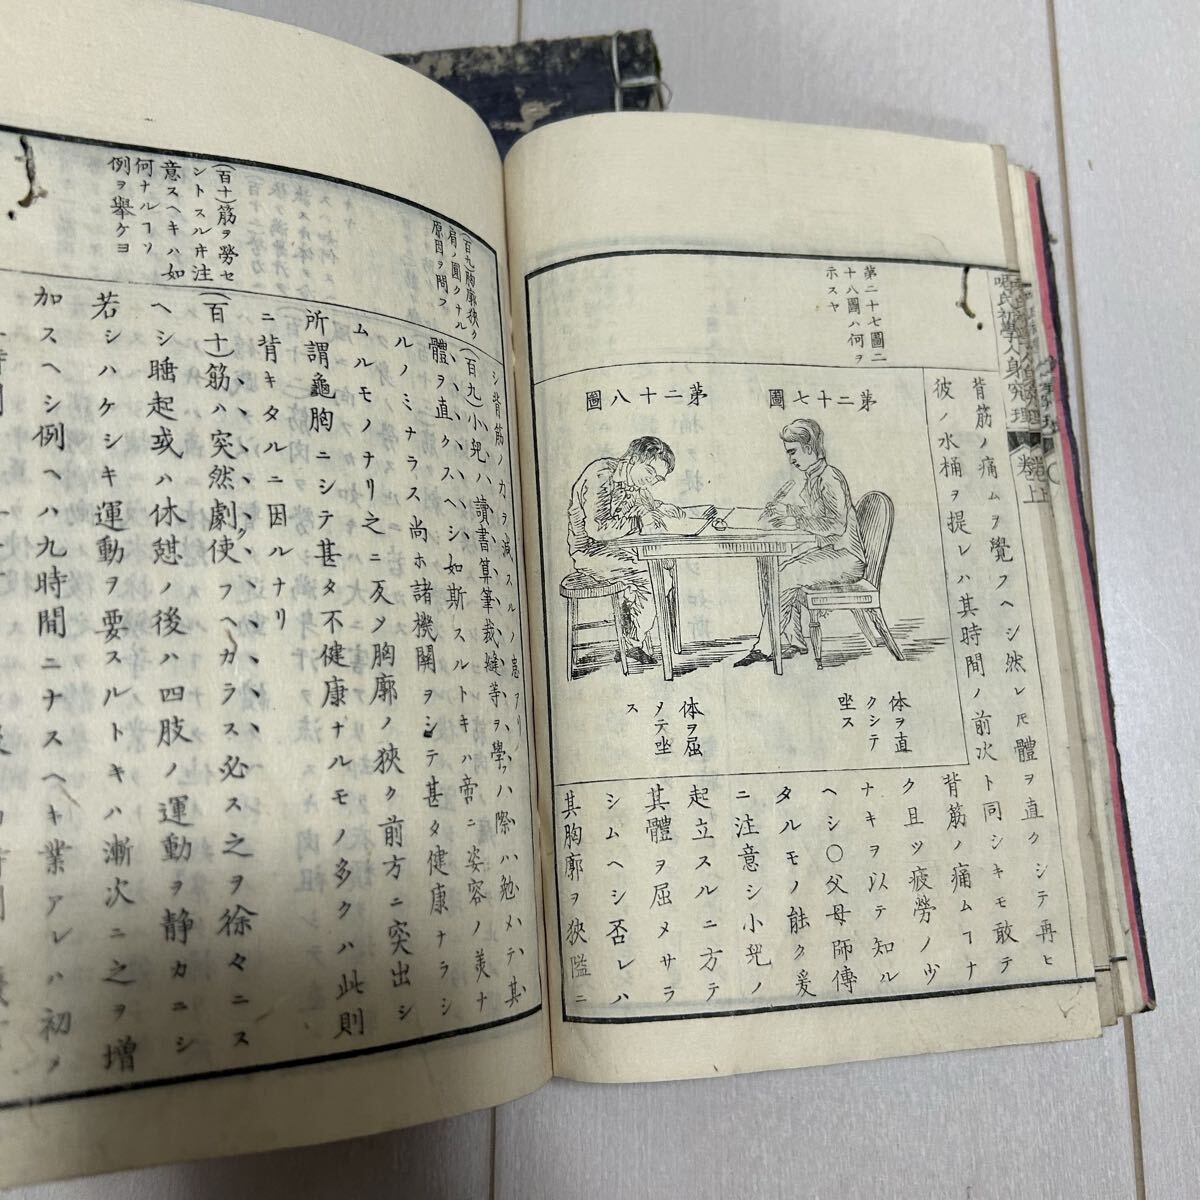 氏初學人身窮理 卷上
第二十七圖二
十八圖ハ何ヲ
示スヤ
背筋ノ痛ムヲ覺フヘシ然レ𪜈體ヲ直クシテ再ヒ
彼ノ水桶ヲ提レハ其時間ノ前次ト同シキモ敢テ
第二十七圖
体ヲ直
クシテ
坐ス
第二十八圖
体ヲ屈
メテ坐
ス
背筋ノ痛ムヿナ
ク且ツ疲勞ノ少
ナキヲ以テ知ル
ヘシ〇父母師傳
タルモノ能ク爰
ニ注意シ小兒ノ
起立スルニ方テ
其體ヲ屈メサラ
シムヘシ否レハ
其胸廓ヲ狹隘ニ
(百九)胸廓狹ク
肩ノ圓クナル
原因ヲ問フ
シ背筋ノ力ヲ減スルノ患アリ
(百九)小兒ハ讀書算筆裁縫等ヲ學フ際ハ勉メテ其
體ヲ直クスヘシ如斯スルトキハ啻ニ姿容ノ美ナ
ルノミナラス尚ホ諸機關ヲシテ甚タ健康ナラシ
ムルモノナリ之ニ反ヲ胸廓ノ狹ク前方ニ突出シ
所謂龜胸ニシテ甚タ不健康ナルモノ多クハ此則
ニ背キタルニ因ルナリ
(百十)筋ヲ勞セ
ントスルキ注
意スヘキハ如
何ナルヿソ
例ヲ擧ケヨ
(百十)筋ハ突然劇使フヘカラス必ス之ヲ徐々ニス
ヘシ睡起或ハ休憩ノ後ハ四肢ノ運動ヲ静カニシ
若シハケシキ運動ヲ要スルトキハ漸次ニ之ヲ增
加スヘシ例ヘハ九時間ニナスヘキ業アレハ初ノ